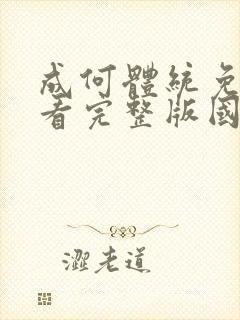 成何體統免
看完整版國
澀老道